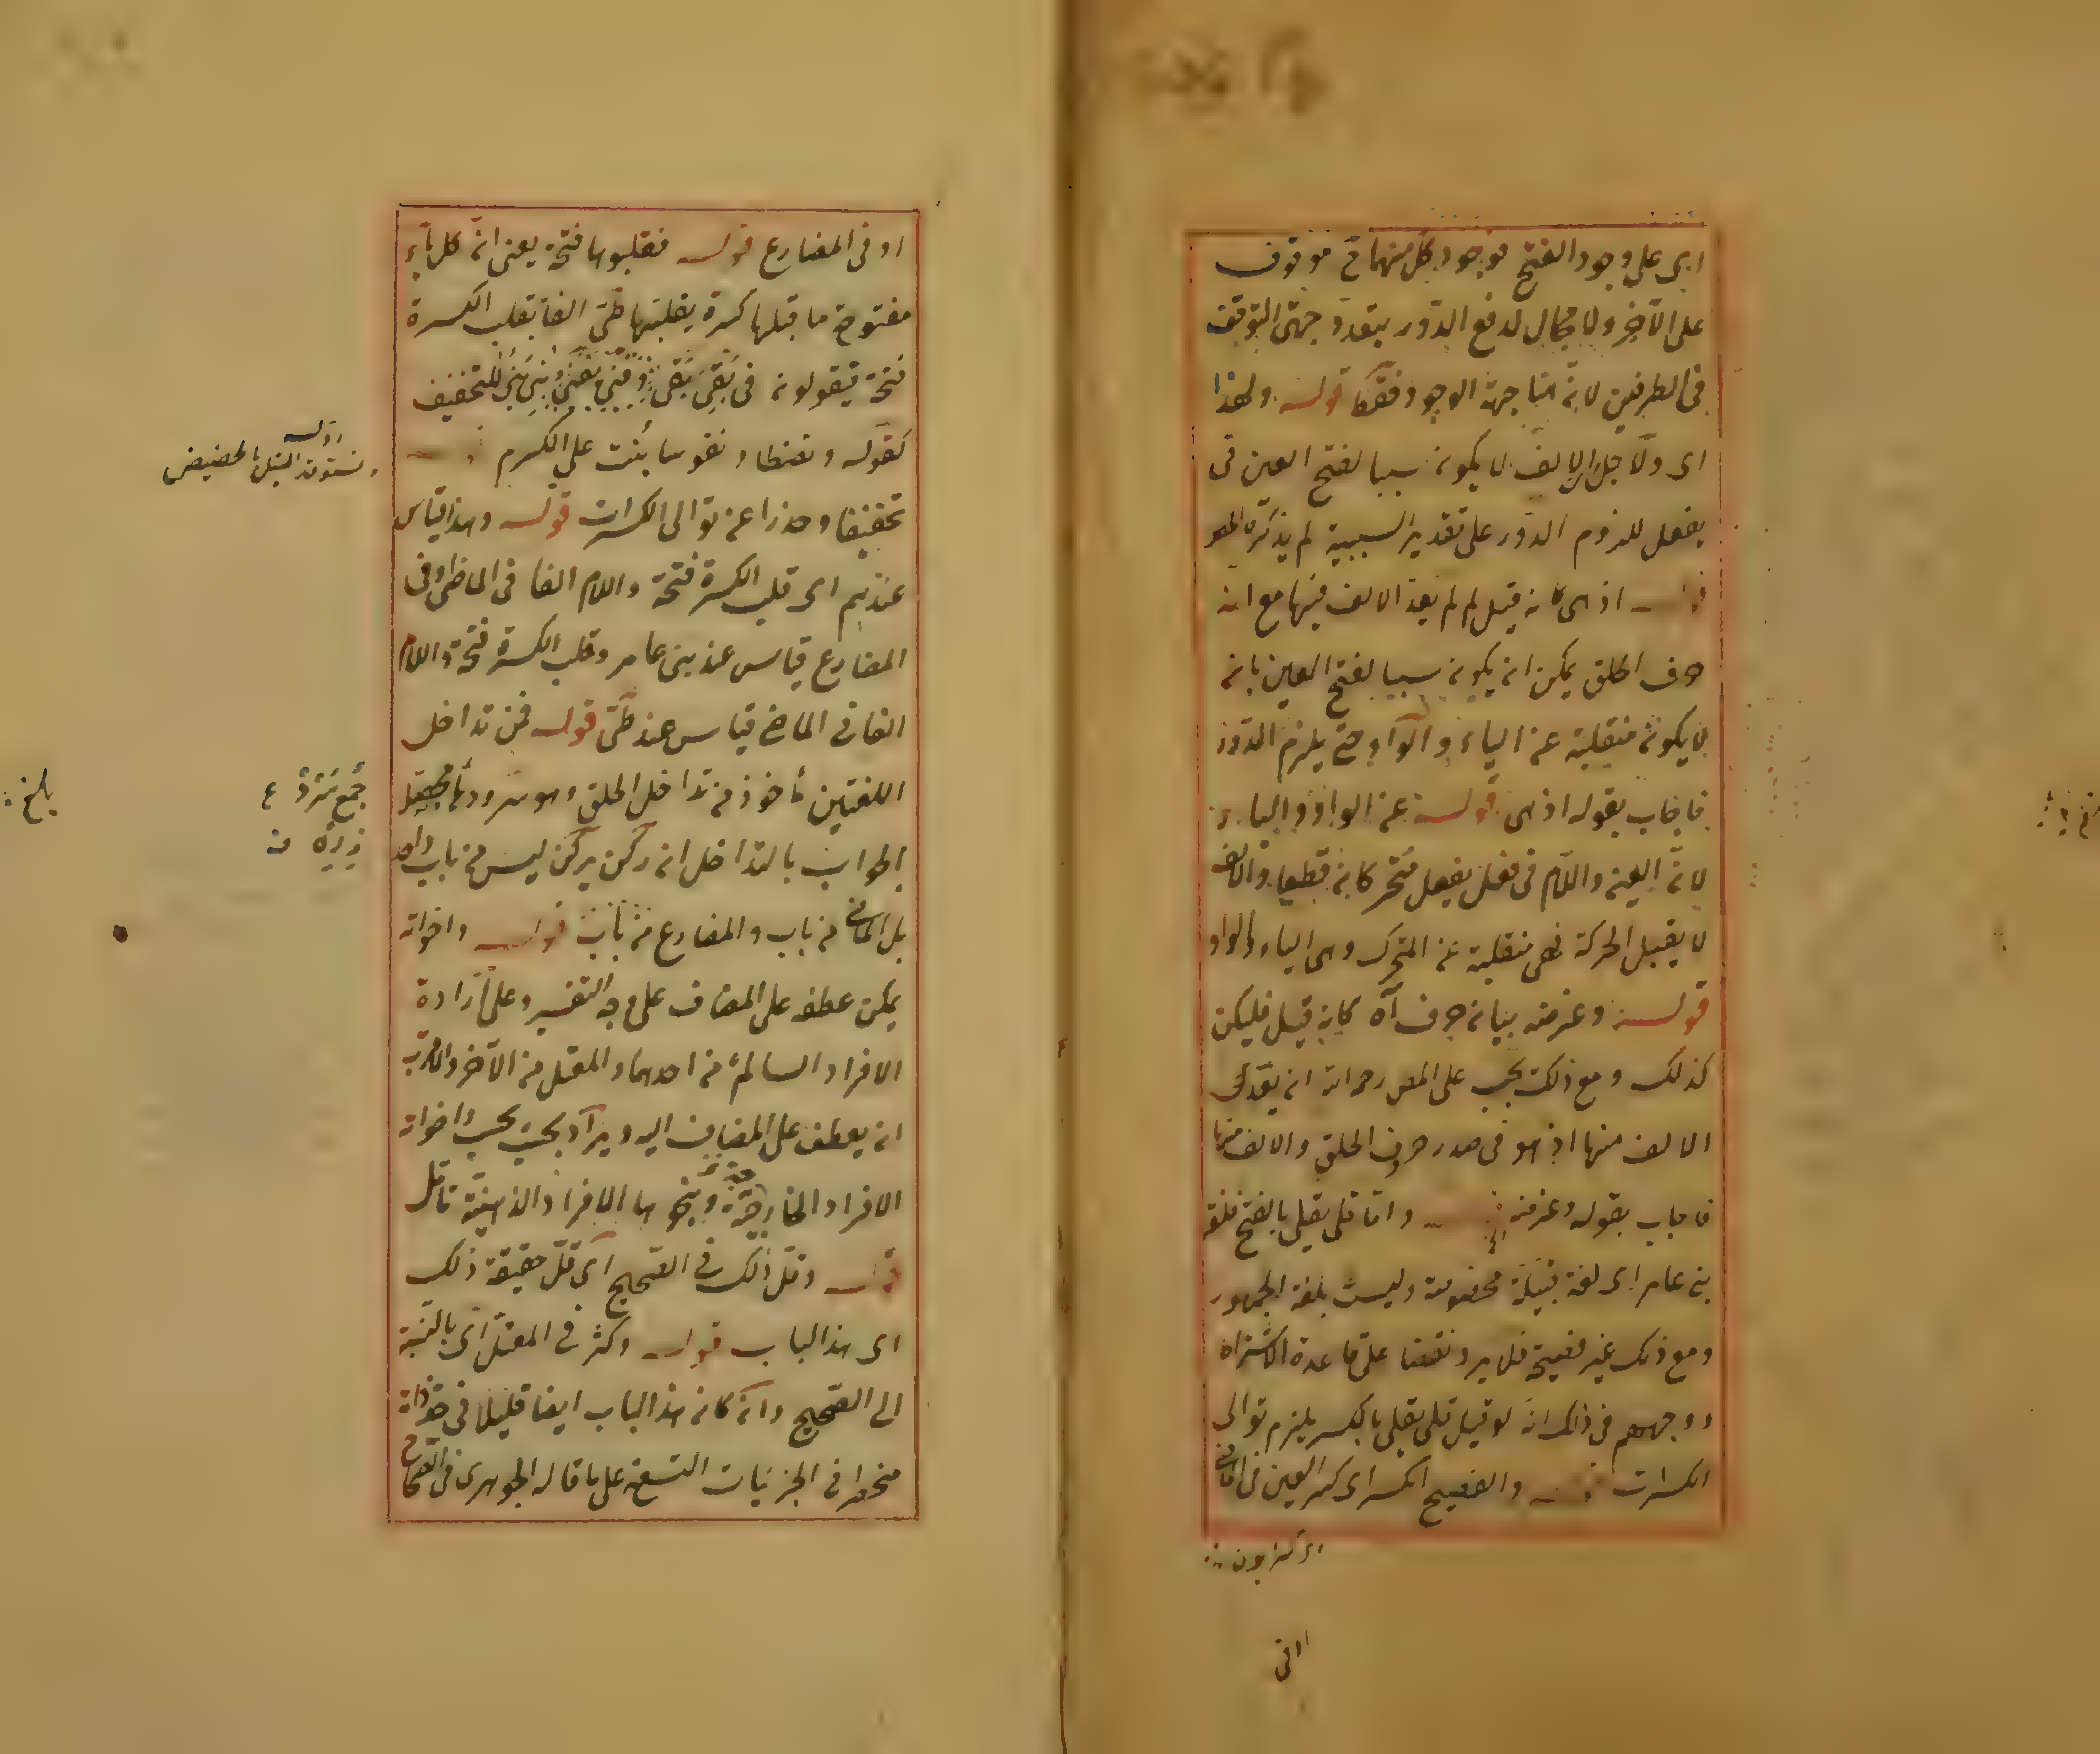 اى على وجود الفتح فوجود كل منهما ح موقوف
على الآخر ولا مجال لدفع الدور بتعدد جهتى التوقف
فى الطرفين لانه هنا جهة الوجود فقط قوله ولهذا
اى ولاجل ان الالف لا يكون سببا لفتح العين فى
يفعل للزوم الدور على تقدير السببية لم يذكره المص
قوله اذ هى كانه قيل لم لم يعد الالف فيها مع انه
حرف الحلق يمكن ان يكون سببا لفتح العين بان
لا يكون منقلبة عن الياء والواو حتى يلزم الدور
فاجاب بقوله اذ هى قوله عن الواو والياء
لان العين واللام فى فعل يفعل متحركان قطعا والالف
لا يقبل الحركة فهى منقلبة عن المتحرك وهى الياء والواو
قوله وغرضه بيان حرف آه كانه قيل فليكن
كذلك ومع ذلك يجب على المص رحمه الله ان يعد
الالف منها اذ هو فى صدر حروف الحلق والالف منها
فاجاب بقوله وغرضه الخ قوله واما قلى يقلى بالفتح فلغة
بنى عامر اى لغة قبيلة مخصوصة وليست بلغة الجمهور
ومع ذلك غير فصيحة فلا يرد نقضا على قاعدة الاشتراط
ووجههم فى ذلك انه لو قيل قلى يقلى بالكسر يلزم توالى
الكسرات قوله والفصيح الكسر اى كسر العين فى الماضى
او فى
او فى المضارع قوله فقلبوها فتحة يعنى ان كل ياء
مفتوح ما قبلها كسرة يقلبها طى الفا بقلب الكسرة
فتحة فيقولون فى بَقِىَ بَقَى و فنى يفنى و بنى بنى للتخفيف
كقوله ونصطاد نفوسا بنت على الكرم
تخفيفا وحذرا عن توالى الكسرات قوله وهذا قياس
عندهم اى قلب الكسرة فتحة واللام الفا فى الماضى او فى
المضارع قياس عند بنى عامر وقلب الكسرة فتحة واللام
الفا فى الماضى قياس عند طى قوله فمن تداخل
اللغتين مأخوذ من تداخل الحلق وهو سرود
الجواب بالتداخل ان ركن يركن ليس من باب واحد
بل الماضى من باب والمضارع من باب قوله واخواته
يمكن عطفه على المضاف على وجه التفسير وعلى ارادة
الافراد السالم من احدهما والمعتل من الآخر والاقرب
ان يعطف على المضاف اليه ويراد بحيث يحسب واخواته
الافراد الخارجية وبنحوها الافراد الذهنية تأمل
قوله وقل ذلك فى الصحيح اى قل حقيقة ذلك
اى هذا الباب قوله وكثر فى المعتل اى بالنسبة
الى الصحيح وان كان هذا الباب ايضا قليلا فى حد ذاته
منحصرا فى الجزئيات التسعة على ما قاله الجوهرى فى الصحاح
نستوقد النبل بالحضيض
جمع سرد ع
بلغ